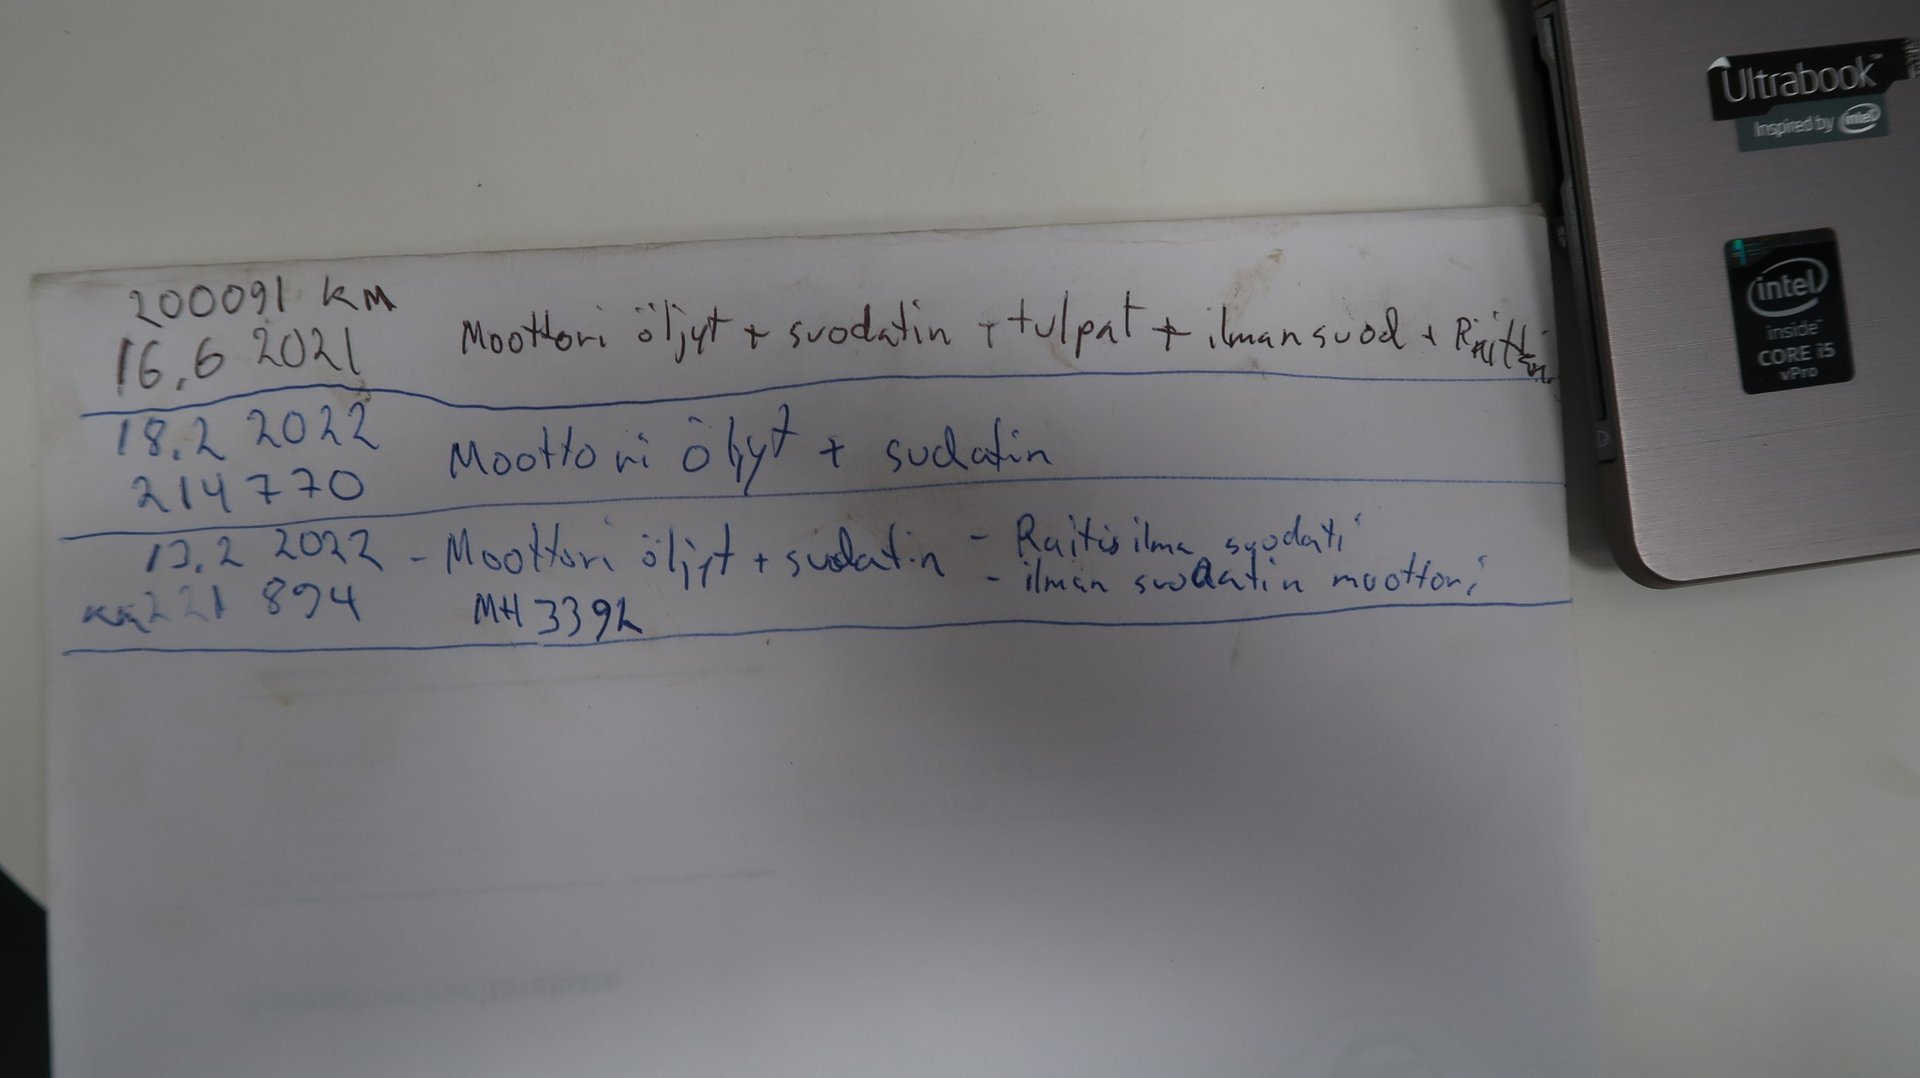 200091 KM
16.6 2021 Moottori öljyt + suodatin + tulpat + ilman suod +
18.2 2022
214770 Moottori öljyt + sudatin
13.2 2022 - Moottori öljyt + sudatin - Raitis ilma syodati
221 894 MH 339 - ilman suodatin moottori
Ultrabook™
Inspired by intel
intel
inside™
CORE i5
vPro